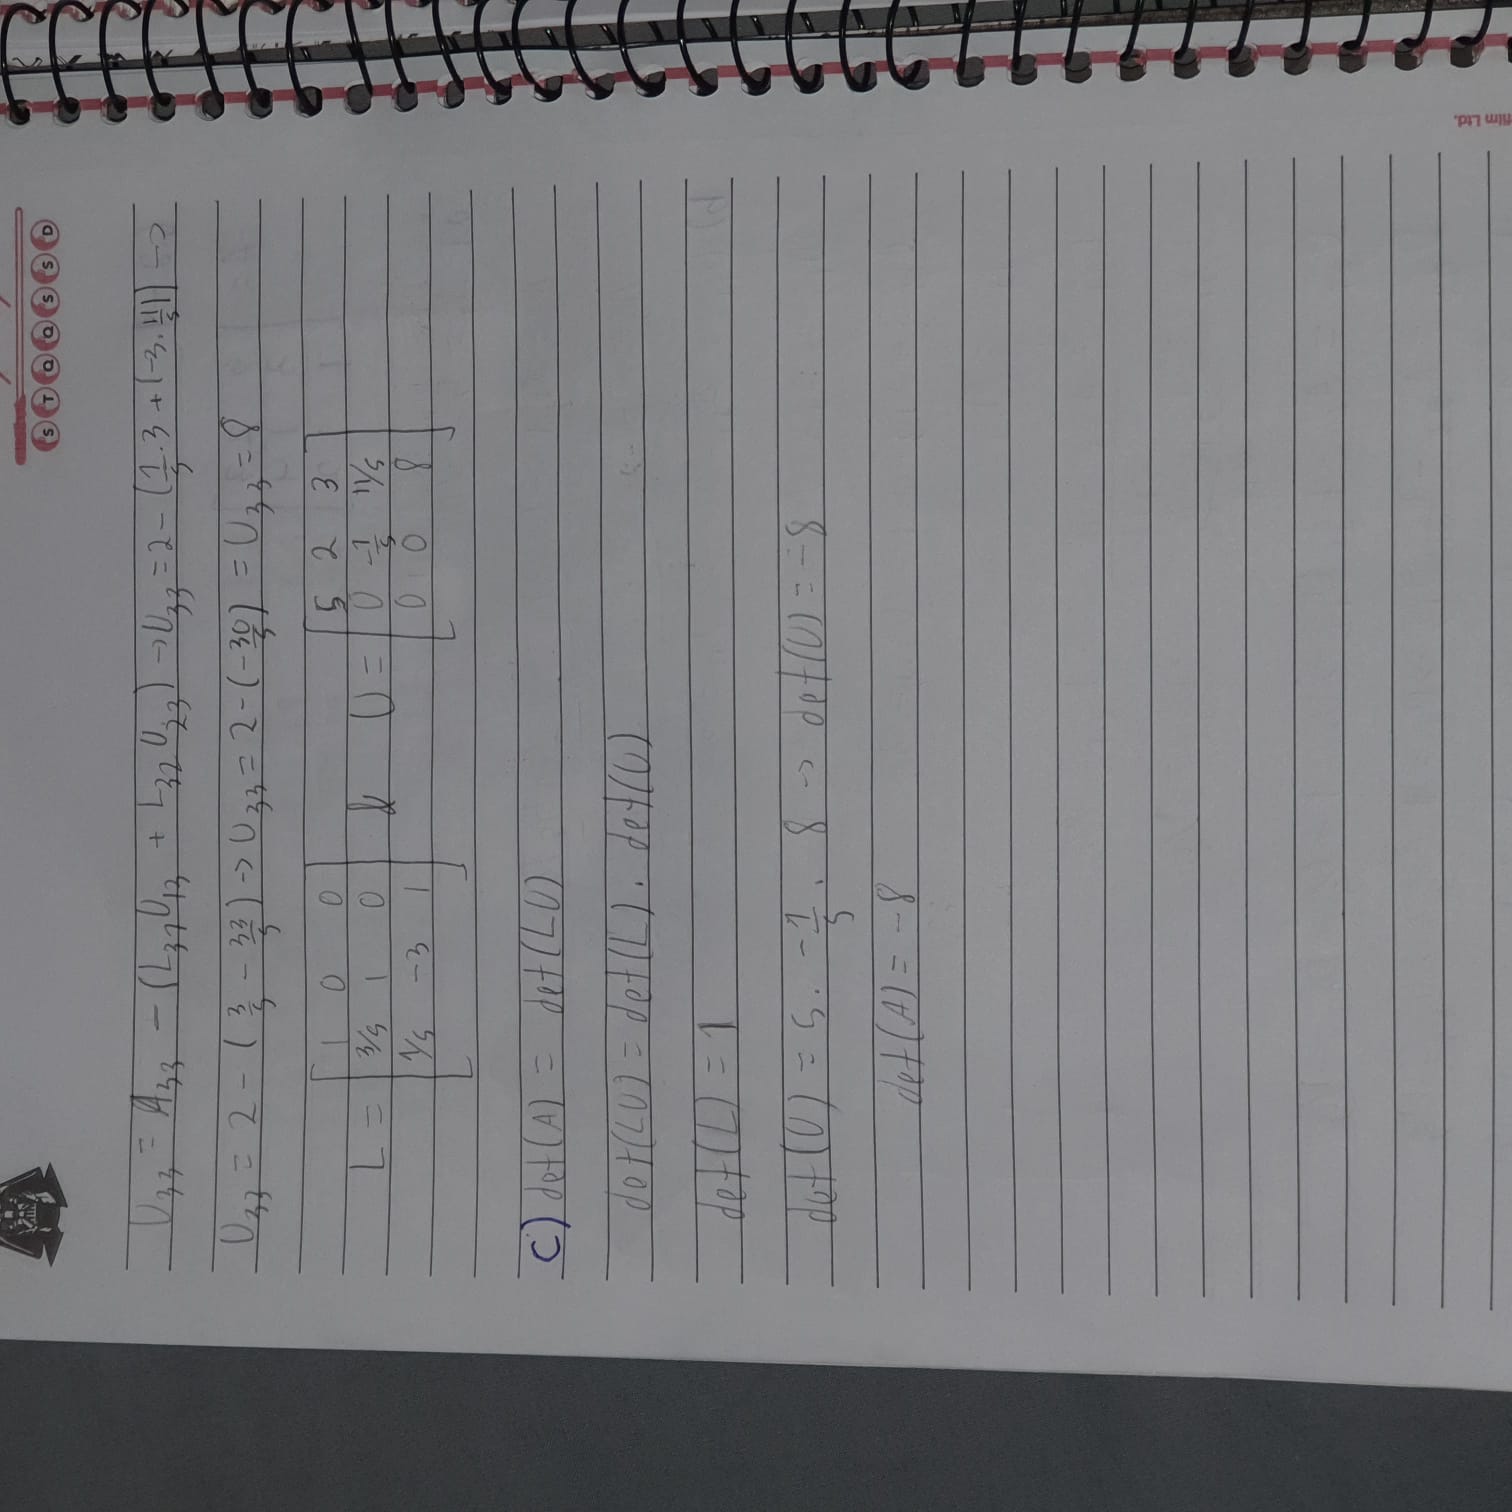 S T Q Q S S D
U₃₃ = A₃₃ - (L₃₁U₁₃ + L₃₂U₂₃) → U₃₃ = 2 - (1/5 · 3 + (-3 · 11/5)) →
U₃₃ = 2 - (3/5 - 33/5) → U₃₃ = 2 - (-30/5) = U₃₃ = 8
L = [1 0 0 & U = [5 2 3
3/5 1 0 0 -1/5 11/5
1/5 -3 1] 0 0 8]
C) det(A) = det(LU)
det(LU) = det(L) . det(U)
det(L) = 1
det(U) = 5 . -1/5 . 8 → det(U) = -8
det(A) = -8
film Ltd.